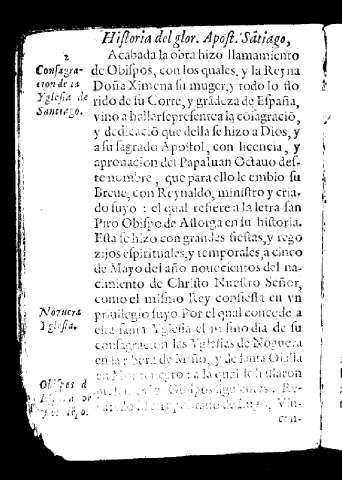 Historia del glor. Apost. Sãtiago,
2
Consagra-
cion de la
Yglesia de
Santiago.
Acabada la obra hizo llamamiento
de Obispos, con los quales, y la Reyna
Doña Ximena su muger, y todo lo flo
rido de su Corte, y grãdeza de España,
vino a hallarse presente a la cõsagraciõ,
y dedicaciõ que della se hizo a Dios, y
a su sagrado Apostol, con licencia, y
aprouacion del Papa Iuan Octauo des-
te nombre, que para ello le embio su
Breue, con Reynaldo, ministro y cria-
do suyo: el qual refiere a la letra san
Piro Obispo de Astorga en su historia.
Esta se hizo con grandes fiestas, y rego
zijos espirituales, y temporales, a cinco
de Mayo del año nouecientos del na-
cimiento de Christo Nuestro Señor,
como el mismo Rey confiessa en vn
Noguera
Yglesia.
priuilegio suyo. Por el qual concede a
esta santa Yglesia el mismo dia de su
consagracion las Yglesias de Noguera
en la ribera de Miño, y de santa Olalla
en Montenegro: a la qual se hallaron
Obispos
Obispos siguientes.
de Lugo, Vin-
cen-